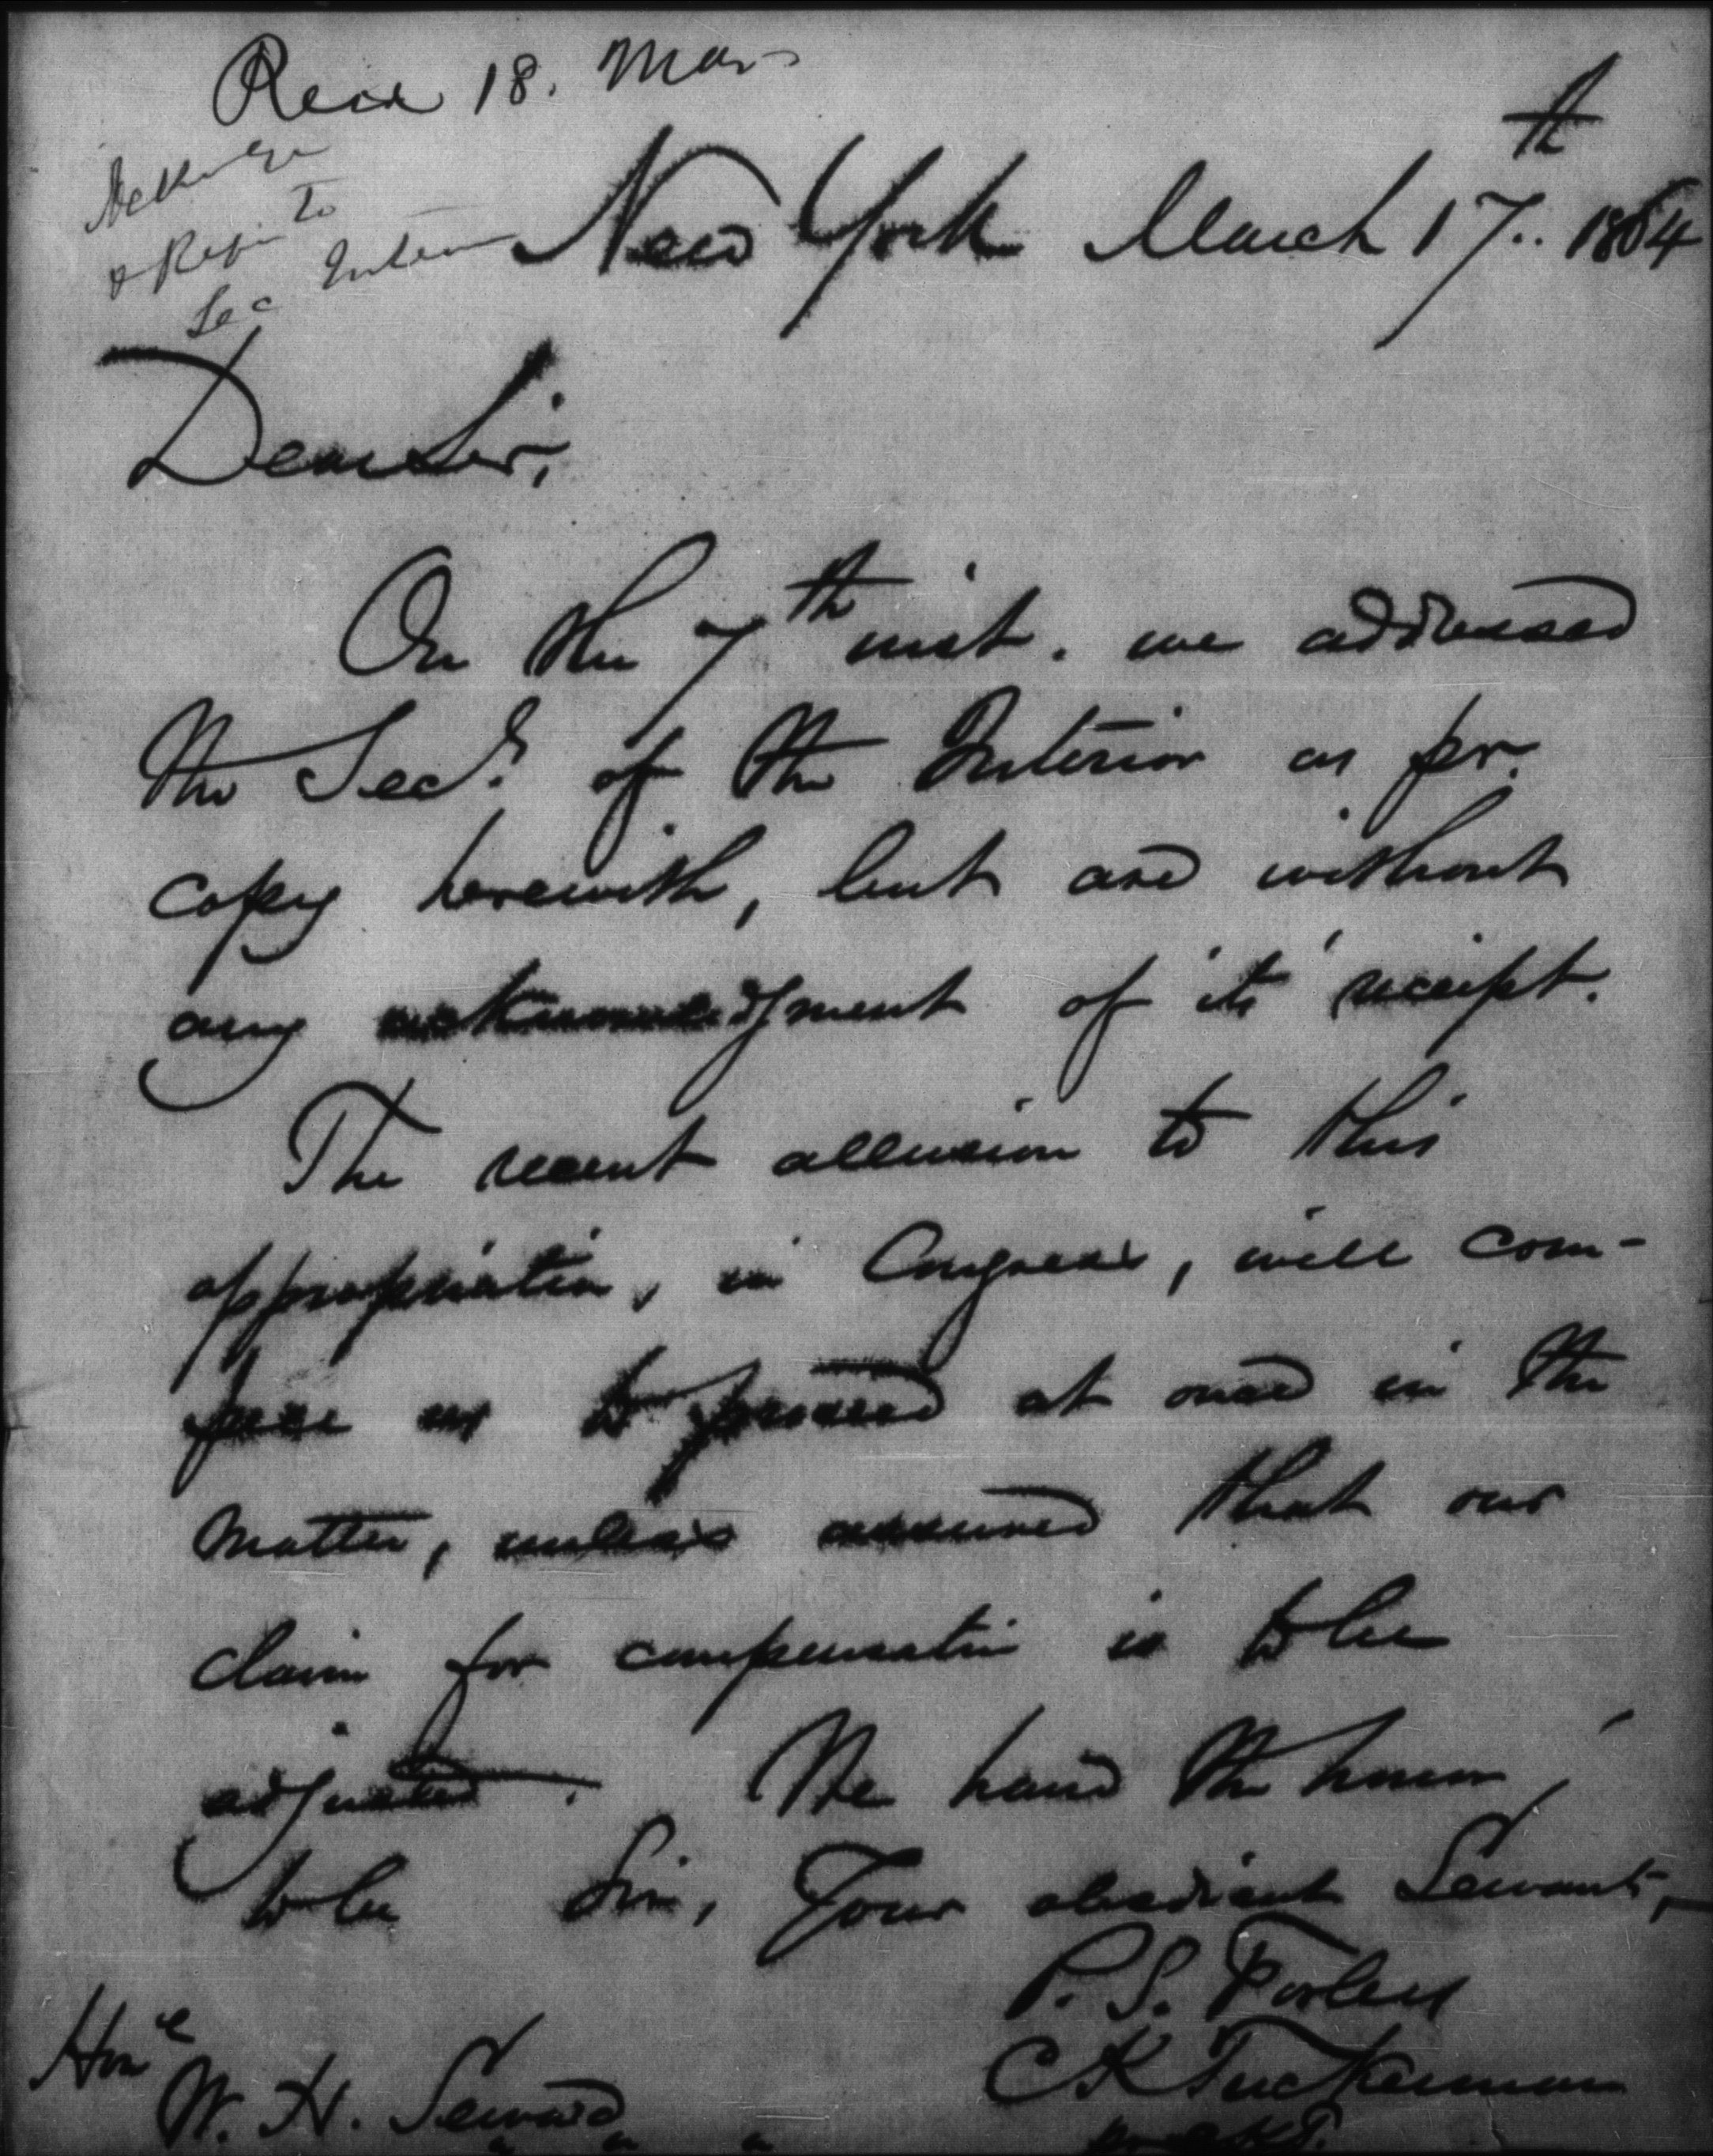 Recd 18. Mar
Acknlge
& Refer to
Sec Interior
New York March 17th. 1864
Dear Sir,
On the 7th inst. we addressed
the Secy. of the Interior as pr.
copy herewith, but are without
any acknowledgment of its receipt.
The recent allusion to this
appropriation, in Congress, will com-
pel us to proceed at once in the
matter, unless assured that our
claim for compensation is to be
adjusted. We have the honor,
to be Sir, Your obedient Servants,
P. S. Forbes
C K Tuckerman
Hone
W. H. Seward